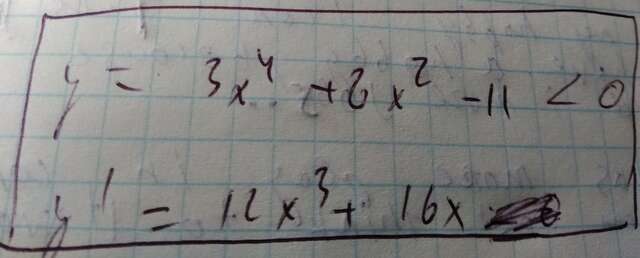 y = 3x⁴ + 8x² - 11 < 0
y' = 12x³ + 16x